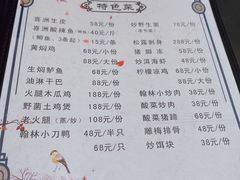 特色菜
喜洲生皮 58元/份
喜洲酸辣鱼 40元/斤
(鲫鱼、3条起) 15元/条
黄焖鸡 68元/小份
88元/大份
生焖鲈鱼 68元/份
油淋干巴 88元/份
火腿木瓜鸡 188元/份
野菌土鸡煲 188元/份
老火腿(蒸/炒) 88元/份
翰林小刀鸭 48元/半只
68元/只
炒野生菌 78元/份
松露刺身 288元/份
猪脚冻 58元/份
炒洱海虾 48元/份
柠檬凉鸡 68元/份
翰林小炒肉 38元/份
酸菜炒肉 38元/份
酸菜猪蹄 68元/份
雕梅排骨 48元/份
炒饵块 38元/份